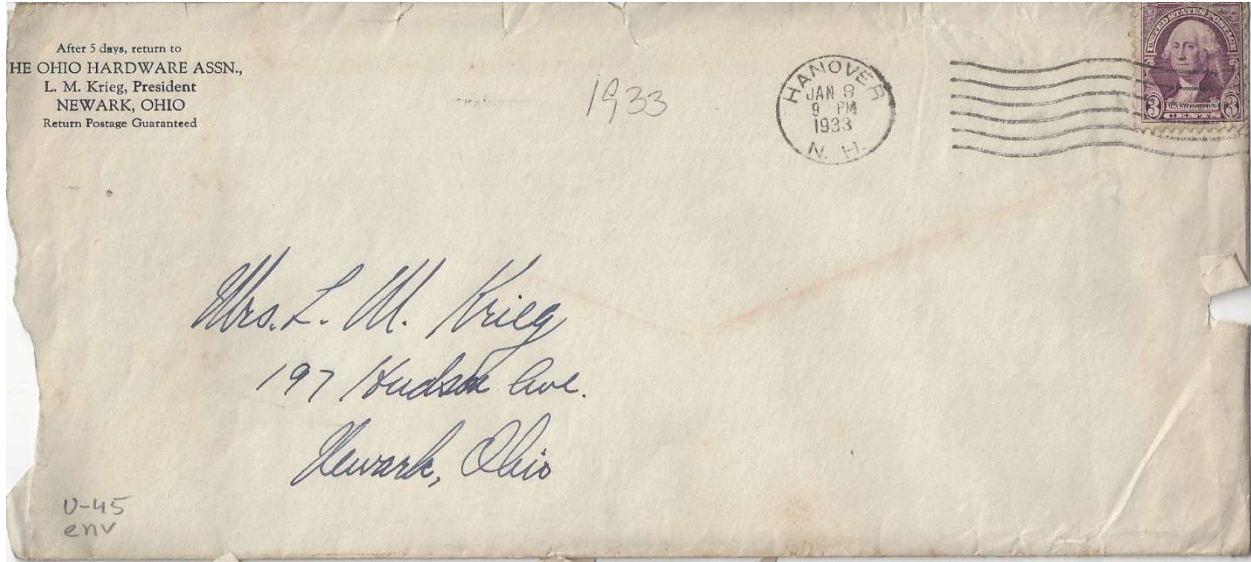 After 5 days, return to
HE OHIO HARDWARE ASSN.,
L. M. Krieg, President
NEWARK, OHIO
Return Postage Guaranteed
1933
HANOVER
JAN 9
9 PM
1933
N. H.
UNITED STATES POSTAGE
3 WASHINGTON 3
CENTS
Mrs. L. M. Krieg
197 Hudson Ave.
Newark, Ohio
U-45
env